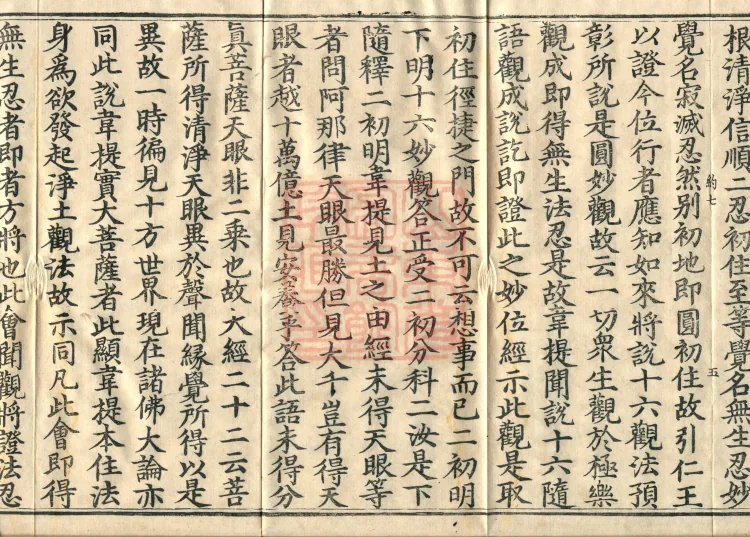 根清淨信順二忍初住至等覺名無生忍妙
覺名寂滅忍然别初地即圓初住故引仁王
以證今位行者應知如來將說十六觀法預
彰所說是圓妙觀故云一切衆生觀於極樂
觀成即得無生法忍是故韋提聞說十六隨
語觀成說訖即證此之妙位經示此觀是取
初住徑捷之門故不可云想事而已二初明
下明十六妙觀答正受二初分科二汝是下
隨釋二初明韋提見土之由經未得天眼等
者問阿那律天眼最勝但見大千豈有得天
眼者越十萬億土見安養乎答此語未得分
眞菩薩天眼非二乘也故大經二十二云菩
薩所得清淨天眼異於聲聞緣覺所得以是
異故一時徧見十方世界現在諸佛大論亦
同此說韋提實大菩薩者此顯韋提本住法
身爲欲發起淨土觀法故示同凡此會即得
無生忍者即者方將也此會聞觀將證法忍
約七
五